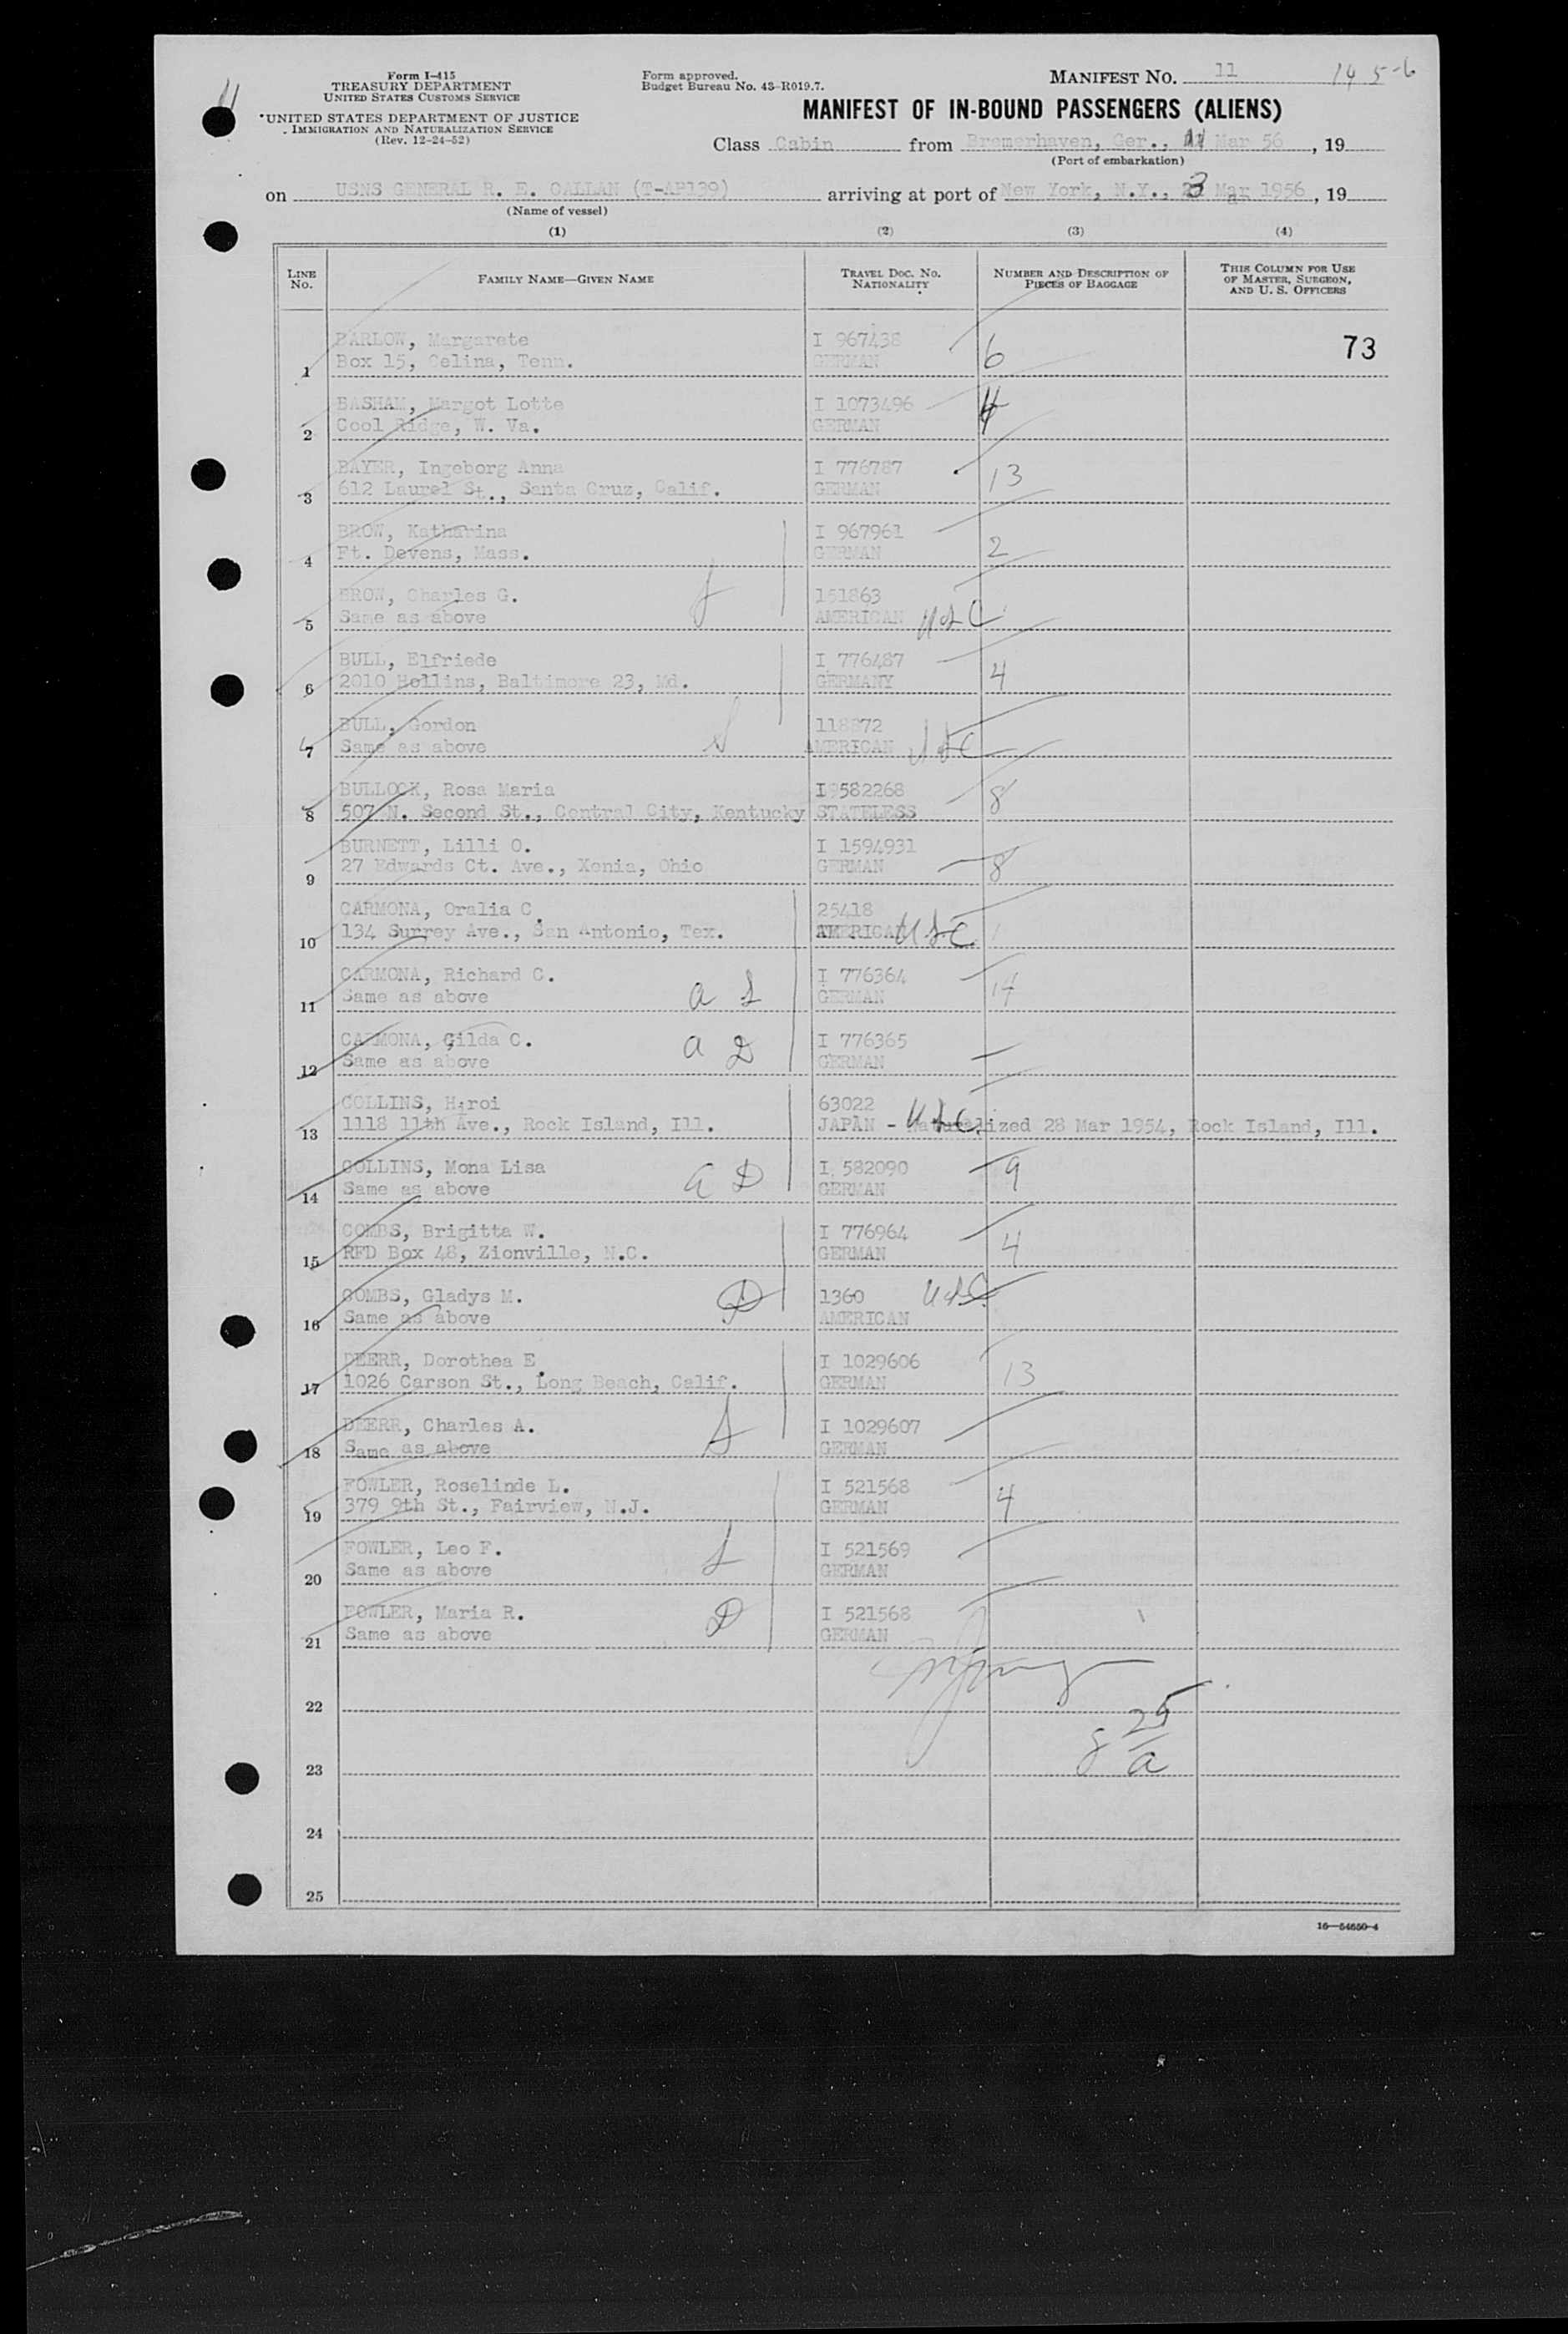 Form I-415
TREASURY DEPARTMENT
UNITED STATES CUSTOMS SERVICE
UNITED STATES DEPARTMENT OF JUSTICE
IMMIGRATION AND NATURALIZATION SERVICE
(Rev. 12-24-52)
Form approved.
Budget Bureau No. 43-R019.7.
MANIFEST No. 11
14 5-6
MANIFEST OF IN-BOUND PASSENGERS (ALIENS)
Class Cabin from Bremerhaven, Ger., Mar 56, 19
(Port of embarkation)
on USNS GENERAL R. E. CALLAN (T-AP139) arriving at port of New York, N.Y., 23 Mar 1956, 19
(Name of vessel)
(1) (2) (3) (4)
LINE No. FAMILY NAME—GIVEN NAME TRAVEL DOC. No. NATIONALITY NUMBER AND DESCRIPTION OF PIECES OF BAGGAGE THIS COLUMN FOR USE OF MASTER, SURGEON, AND U. S. OFFICERS
BARLOW, Margarete I 967438 73
1 Box 15, Celina, Tenn. GERMAN 6
BASHAM, Margot Lotte I 1073496 4
2 Cool Ridge, W. Va. GERMAN
BAYER, Ingeborg Anna I 776787
3 612 Laurel St., Santa Cruz, Calif. GERMAN 13
BROW, Katharina I 967961
4 Ft. Devens, Mass. GERMAN 2
BROW, Charles G. 151863
5 Same as above AMERICAN USC
BULL, Elfriede I 776487
6 2010 Hollins, Baltimore 23, Md. GERMANY 4
BULL, Gordon 118872
7 Same as above AMERICAN USC
BULLOCK, Rosa Maria I 582268
8 507 N. Second St., Central City, Kentucky STATELESS 8
BURNETT, Lilli O. I 1594931
9 27 Edwards Ct. Ave., Xenia, Ohio GERMAN 8
CARMONA, Oralia C. 25418
10 134 Surrey Ave., San Antonio, Tex. AMERICAN USC
CARMONA, Richard C. I 776364
11 Same as above a S GERMAN 14
CARMONA, Gilda C. I 776365
12 Same as above a D GERMAN
COLLINS, Hiroi 63022
13 1118 11th Ave., Rock Island, Ill. JAPAN - USC Naturalized 28 Mar 1954, Rock Island, Ill.
COLLINS, Mona Lisa I 582090 9
14 Same as above a D GERMAN
COMBS, Brigitta W. I 776964
15 RFD Box 48, Zionville, N.C. GERMAN 4
COMBS, Gladys M. D 1360 USC
16 Same as above AMERICAN
DEERR, Dorothea E. I 1029606
17 1026 Carson St., Long Beach, Calif. GERMAN 13
DEERR, Charles A. S I 1029607
18 Same as above GERMAN
FOWLER, Roselinde L. I 521568
19 379 9th St., Fairview, N.J. GERMAN 4
FOWLER, Leo F. S I 521569
20 Same as above GERMAN
FOWLER, Maria R. D I 521568
21 Same as above GERMAN
22
25
23 a
24
25
16—54650-4